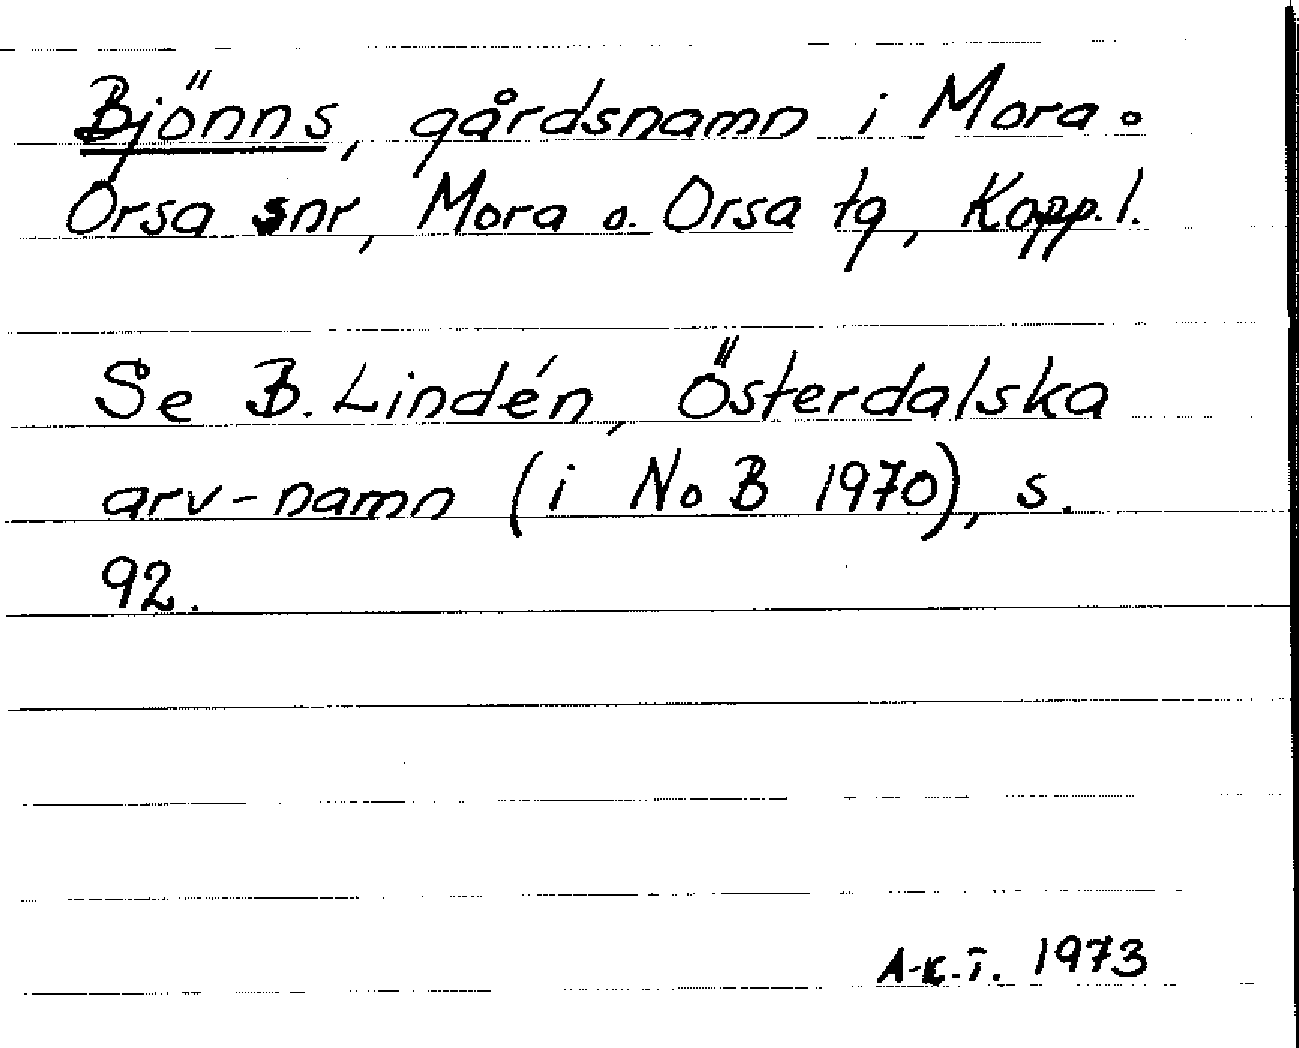 Bjönns, gårdsnamn i Mora o
Orsa snr, Mora o. Orsa tg, Kopp.l.
Se B. Lindén, Österdalska
arv-namn (i NoB 1970), s.
92.
A-K.T. 1973